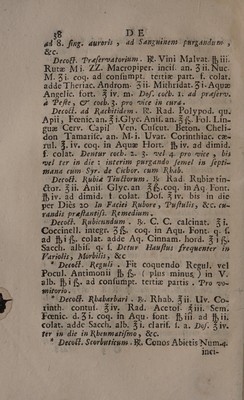 38 D E
ad 8. sing. auroris , ad Sanguinem purgandum ,
&c.
Decoct. Præservatorium. ℞. Vini Malvat. ℔iii.
Rutæ M i. ZZ. Macropiper. incis. an. ʒii. Nuc.
M. ʒi. coq. ad consumpt. tertiæ part. f. colat.
adde Theriac. Androm. ʒii. Mithridat. ʒi. Aquæ
Angelic. fort. ℥iv. m. Dos. coch. 1. ad præserv.
à Peste, & coch. 3. pro vice in cura.
Decoct. ad Rachitidem ℞. Rad. Polypod. qu.
Apii, Fœnic. an. ℥i. Glyc. Anis. an. ℥ß. Fol. Lin-
guæ Cerv. Capil Ven. Cuscut. Beton. Cheli-
don Tamarisc. an. M i. Uvar. Corinthiac. cæ-
rul. ℥. iv. coq. in Aquæ Hort. ℔iv. ad dimid.
f. colat. Dentur coch. 2. 3. vel 4. pro vice, bis
vel ter in die : interim purgando semel in septi-
mana cum Syr. de Cichor. cum Rhab.
Decoct. Rubiæ Tinctorum. ℞. Rad. Rubiæ tin-
ctor. ℥ii. Anis. Glyc. an ℥ß. coq. in Aq. Font.
℔iv. ad dimid. f colat. Dos. ℥iv. bis in die
per Diès 20 In Faciei Rubore, Pustulis, &c. cu-
randis præstantiss. Remedium.
Decoct. Rubicundum. ℞. C. C. calcinat. ℥i.
Coccinell. integr. ʒß. coq. in Aqu. Font. q. s.
ad ℔iß. colat. adde Aq. Cinnam. hord. ℥iß.
Sacch. albis. q. s. Detur Haustus frequenter in
Variolis, Morbilis, &c
* Decoct. Reguli. Fit coquendo Regul, vel
Pocul. Antimonii ℔ß. ( plus minus ) in V.
alb. ℔iß. ad consumpt. tertiæ partis . Pro vo-
mitorio.
* Decoct. Rhabarbari. ℞. Rhab. ℥ii. Uv. Co-
rinth. contus. ℥iv. Rad. Acetos. ℥iii. Sem.
Fœnic. d. ʒi. coq. in Aqu. font. ℔iii ad ℔ii.
colat. adde Sacch. alb. ℥i. clarif. f. a. Dos. ℥iv.
ter in die in Rheumatismo, &c.
* Decoct. Scorbuticum. ℞. Conos Abietis Num. 4.
inci-